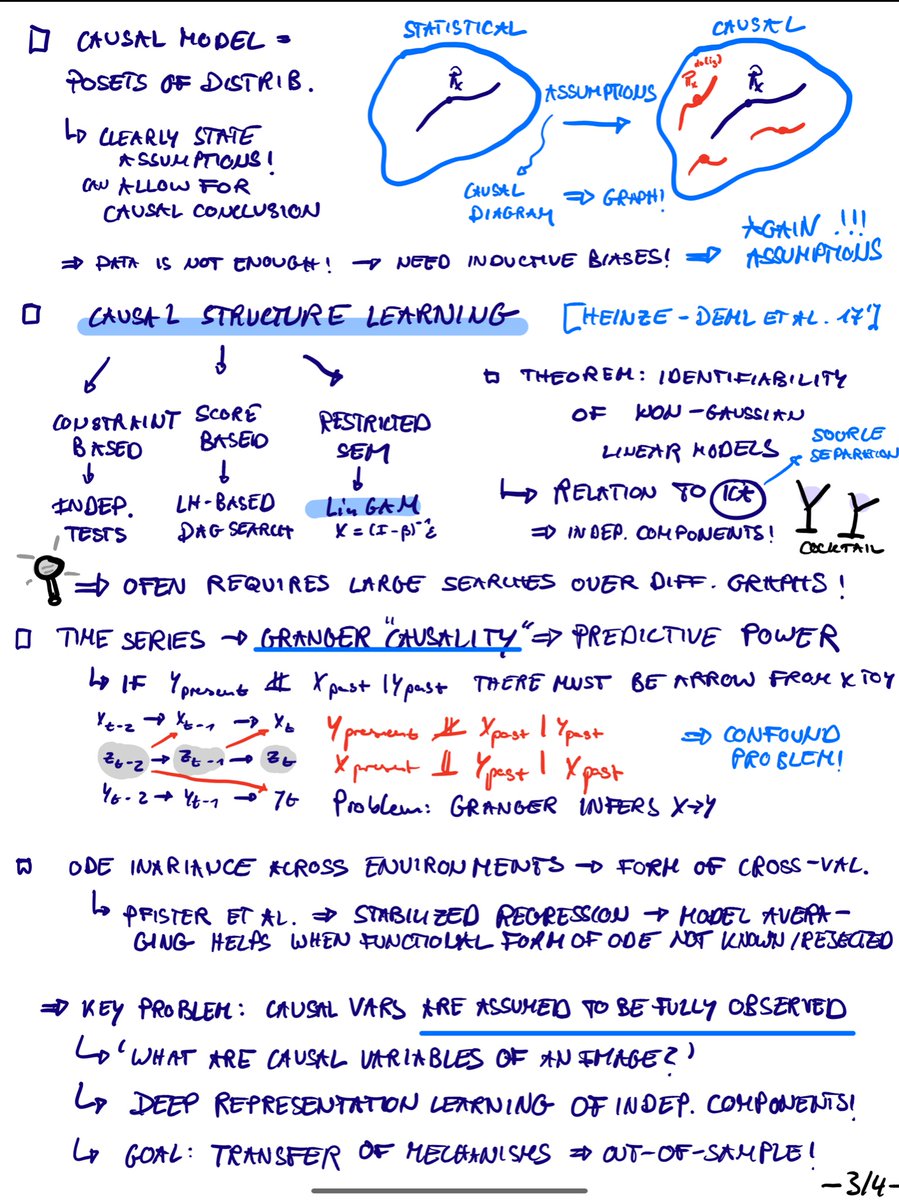 CAUSAL MODEL =
POSETS OF DISTRIB.
↳ CLEARLY STATE
ASSUMPTIONS!
ALLOW FOR
CAUSAL CONCLUSION
STATISTICAL
P̂x
ASSUMPTIONS
CAUSAL
DIAGRAM ⇒ GRAPH!
CAUSAL
P̂x
⇒ DATA IS NOT ENOUGH! → NEED INDUCTIVE BIASES! ⇒ AGAIN !!!
ASSUMPTIONS
CAUSAL STRUCTURE LEARNING [HEINZE-DEML ET AL. 17']
CONSTRAINT
BASED
↓
INDEP.
TESTS
SCORE
BASED
↓
LH-BASED
DAG SEARCH
RESTRICTED
SEM
↓
LinGAM
X = (I-β)⁻¹ε
THEOREM: IDENTIFIABILITY
OF NON-GAUSSIAN
LINEAR MODELS
↳ RELATION TO ICA
SOURCE
SEPARATION
⇒ INDEP. COMPONENTS!
COCKTAIL
⇒ OFEN REQUIRES LARGE SEARCHES OVER DIFF. GRAPHS!
TIME SERIES → GRANGER "CAUSALITY" ⇒ PREDICTIVE POWER
↳ IF Ypresent ⫫̸ Xpast | Ypast THERE MUST BE ARROW FROM X TO Y
Xt-2 → Xt-1 → Xt
Zt-2 → Zt-1 → Zt
Yt-2 → Yt-1 → Yt
Ypresent ⫫̸ Xpast | Ypast
Xpresent ⫫ Ypast | Xpast
Problem: GRANGER INFERS X→Y
⇒ CONFOUND
PROBLEM!
ODE INARIANCE ACROSS ENVIRONMENTS → FORM OF CROSS-VAL.
↳ PFISTER ET AL. ⇒ STABILIZED REGRESSION → MODEL AVERA-
GING HELPS WHEN FUNCTIONAL FORM OF ODE NOT KNOWN/REJECTED
⇒ KEY PROBLEM: CAUSAL VARS ARE ASSUMED TO BE FULLY OBSERVED
↳ 'WHAT ARE CAUSAL VARIABLES OF AN IMAGE?'
↳ DEEP REPRESENTATION LEARNING OF INDEP. COMPONENTS!
↳ GOAL: TRANSFER OF MECHANISMS ⇒ OUT-OF-SAMPLE!
-3/4-